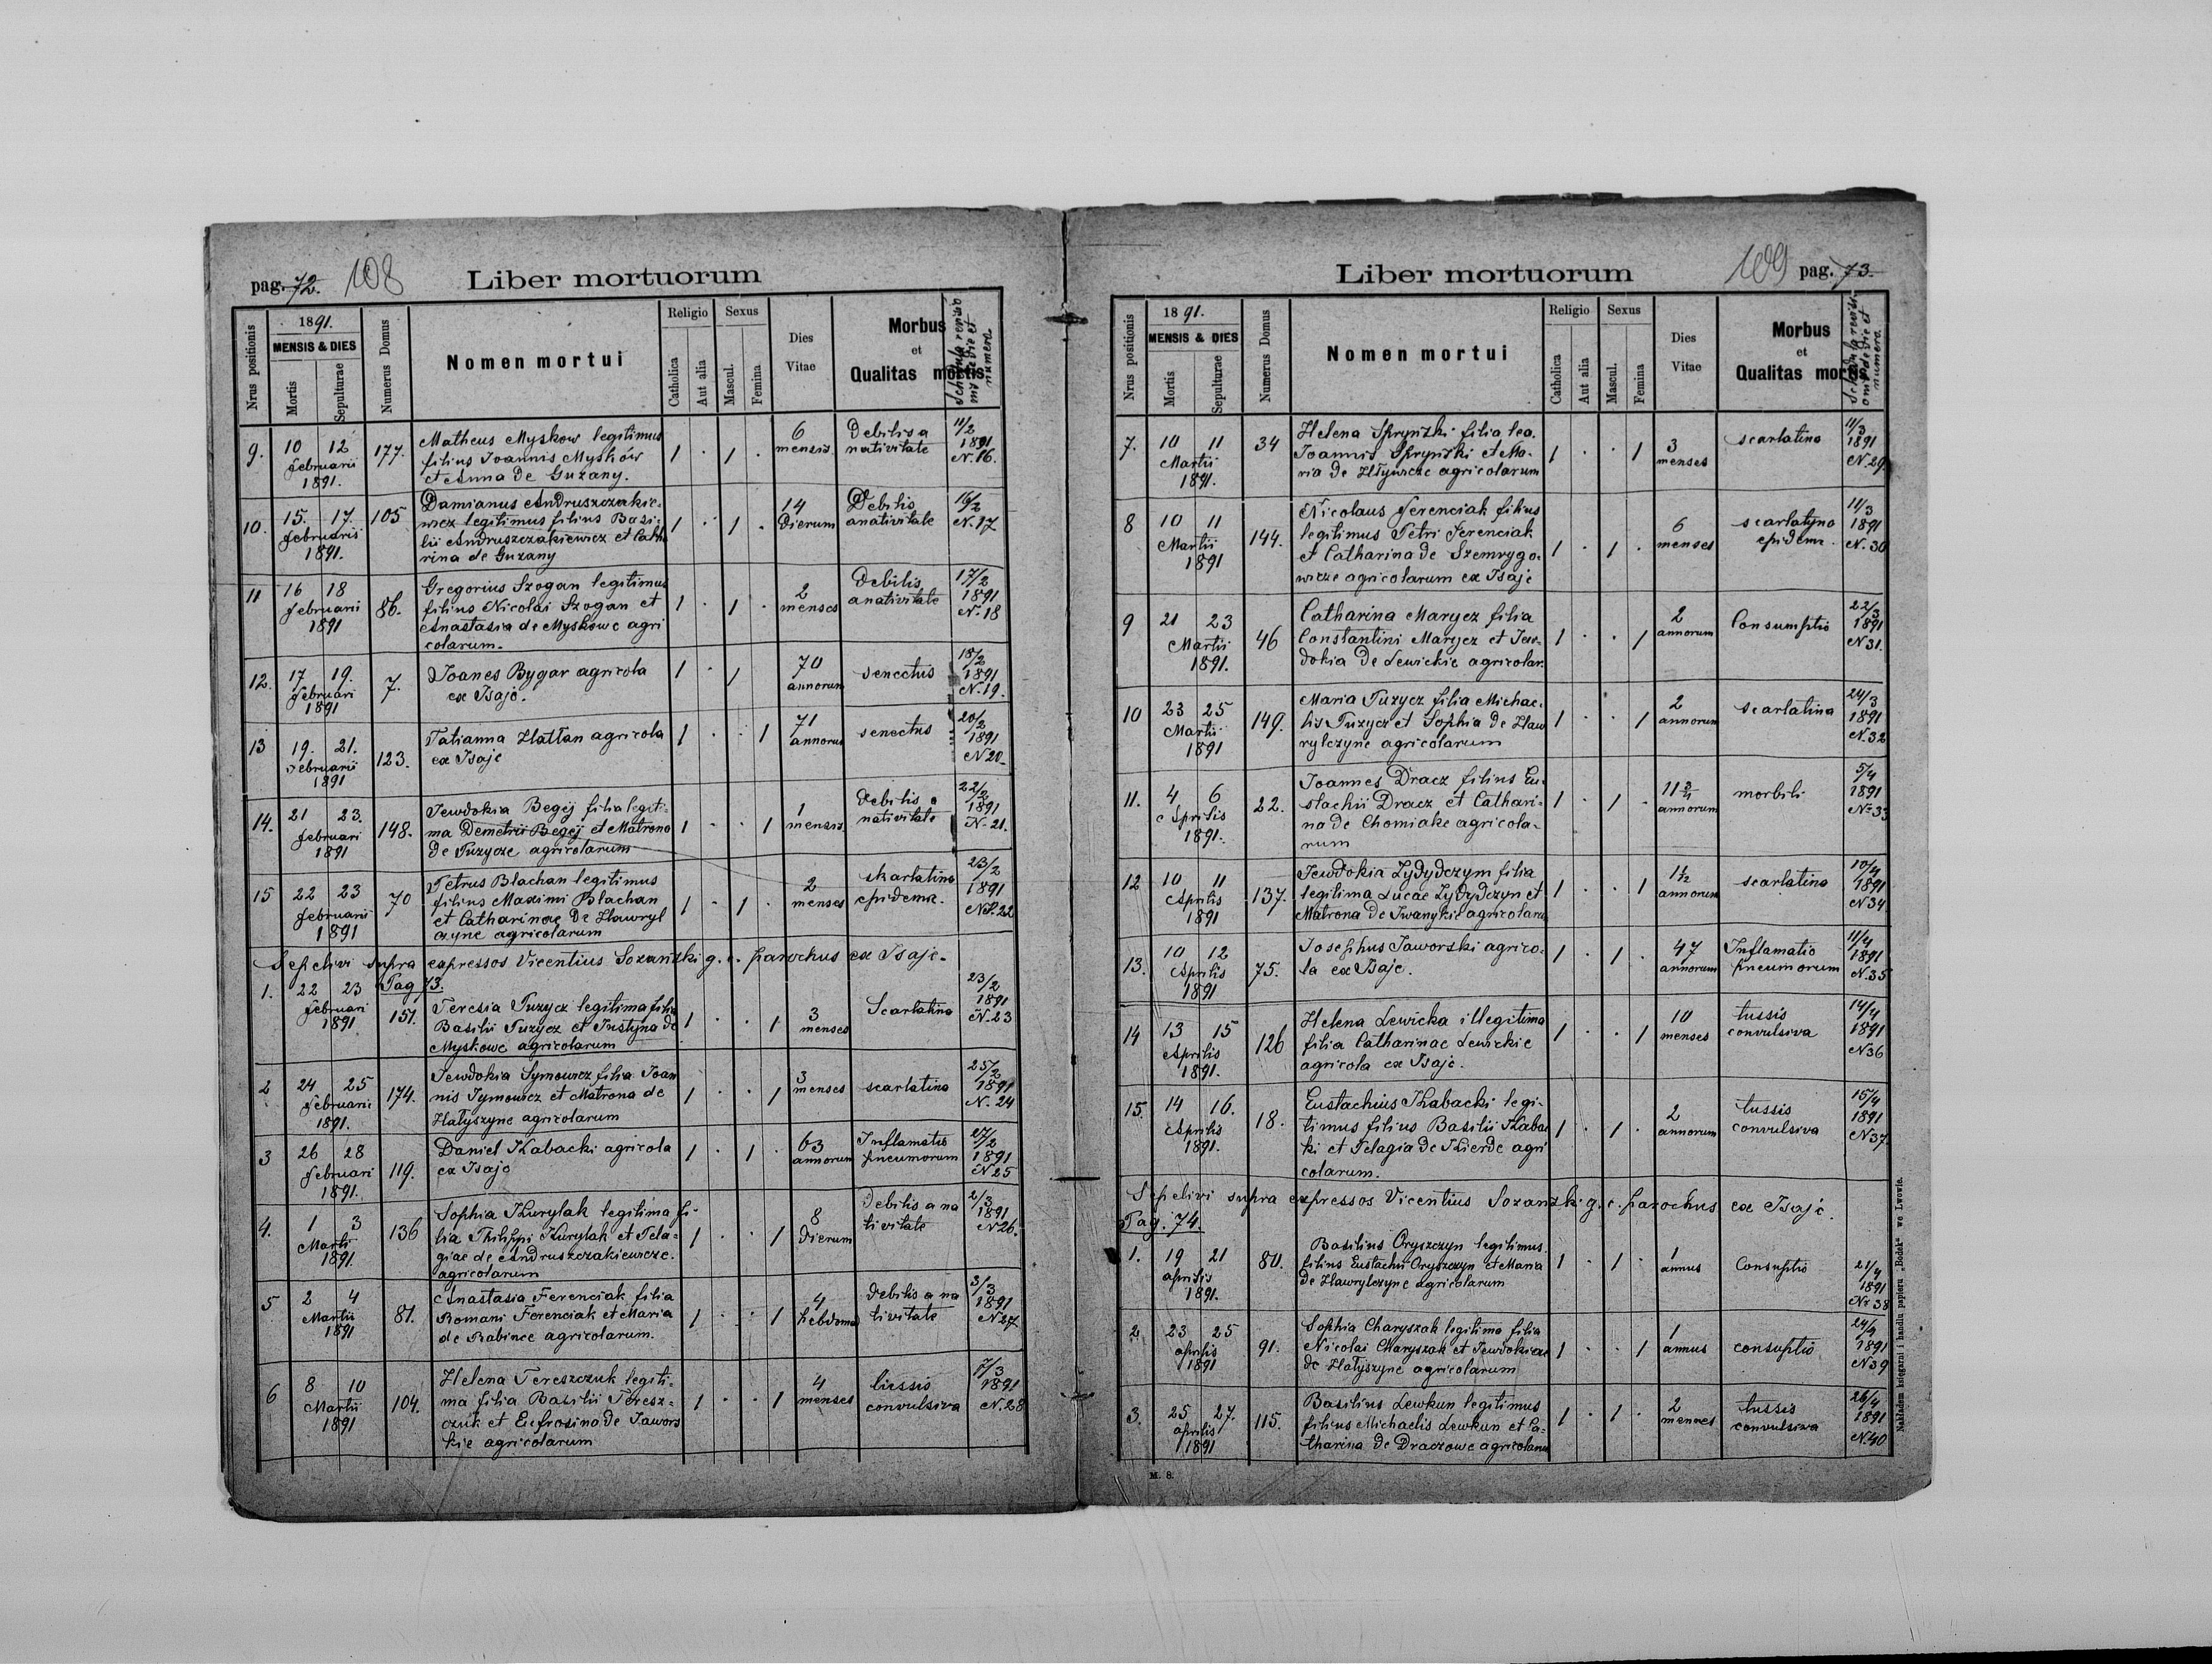 pag. 72. 108
Liber mortuorum
Nrus positionis
1891.
MENSIS & DIES
Mortis
Sepulturae
Numerus Domus
Nomen mortui
Religio
Catholica
Aut alia
Sexus
Mascul.
Femina
Dies
Vitae
Morbus
et
Qualitas mortis
numero.
9. 10 12 Februarii 1891. 177.
Matheus Myskow legitimus
filius Joannis Mysków
et Anna de Guzany.
1 . 1 .
6 mensis
Debilis a
nativitate
11/2 1891 N. 16.
10. 15. 17. Februarii 1891. 105
Damianus Andruszczakie-
wicz legitimus filius Basi-
lii Andruszczakiewicz et Catha
rina de Guzany
1 . 1 .
14 Dierum
Debilis
a nativitate
16/2 N. 17
11 16 18 Februarii 1891 86.
Gregorius Szogan legitimus
filius Nicolai Szogan et
Anastasia de Myskowe agri
colarum.
1 . 1 .
2 menses
Debilis
a nativitate
17/2 1891 N. 18
12. 17 19. Februari 1891 7.
Joanes Bygar agricola
ex Isaje.
1 . 1
70 annorum
senectus
18/2 1891 N. 19.
13 19. 21. Februarii 1891 123.
Tatianna Hałłan agricola
ex Isaje
1 . . 1
71 annorum
senectus
20/2 1891 N 20
14. 21 23. Februari 1891 148.
Jewdokia Begej filia legiti-
ma Demetrii Begej et Matrona
de Tuzycze agricolarum
1 . . 1
1 mensis
Debilis a
nativitate
22/2 1891 N. 21.
15 22 23 Februarii 1891 70
Petrus Blachan legitimus
filius Maximi Blachan
et Catharinae de Hawryl
czyne agricolarum
1 . 1 .
2 menses
skarlatina
epidem.
23/2 1891 N. 22
Sepelivi supra expressos Vicentius Sozanski g. c. parochus ex Isaje.
Pag 73.
1. 22 23 Februari 1891. 151.
Teresia Tuzycz legitima filia
Basilii Tuzycz et Justyna de
Myskowe agricolarum
1 . . 1
3 menses
Scarlatina
23/2 1891 N. 23
2 24 25 Februarii 1891. 174.
Jewdokia Symowicz filia Joan
nis Symowicz et Matrona de
Hałyszyne agricolarum
1 . . 1
3 menses
scarlatina
25/2 1891 N. 24
3 26 28 Februari 1891. 119.
Daniel Kabacki agricola
ex Isaje
1 . 1 .
63 annorum
Inflamatio
pneumorum
27/2 1891 N 25
4. 1 3 Martii 1891. 136
Sophia Kurylak legitima fi-
lia Philippi Kurylak et Pela-
giae de Andruszczakiewicze.
agricolarum
1 . . 1
8 dierum
Debilis a na
tivitate
2/3 1891 N 26.
5 2 4 Martii 1891 81.
Anastasia Ferenciak filia
Romani Ferenciak et Maria
de Babince agricolarum.
1 . . 1
4 hebdomad
debilis a na
tivitate
3/3 1891 N 27
6 8 10 Martii 1891 104.
Helena Tereszczuk legiti-
ma filia Basilii Teresz-
czuk et Eufrosina de Jawors
kie agricolarum
1 . . 1
4 menses
tussis
convulsiva
7/3 1891 N. 28
Liber mortuorum
109 pag. 73.
Nrus positionis
1891.
MENSIS & DIES
Mortis
Sepulturae
Numerus Domus
Nomen mortui
Religio
Catholica
Aut alia
Sexus
Mascul.
Femina
Dies
Vitae
Morbus
et
Qualitas mortis
numero.
7. 10 11 Martii 1891. 34
Helena Spryński filia leg.
Joannis Spryński et Ma-
ria de Hływicze agricolarum
1 . . 1
3 menses
scarlatina
11/3 1891 N. 29
8 10 11 Martii 1891 144.
Nicolaus Ferenciak filius
legitimus Petri Ferenciak
et Catharina de Szemrygo-
wicze agricolarum ex Isaje
1 . 1 .
6 menses
scarlatyna
epidem.
11/3 1891 N. 30
9 21 23 Martii 1891. 46
Catharina Marycz filia
Constantini Marycz et Jew-
dokia de Lewickie agricolar.
1 . . 1
2 annorum
Consumptio
22/3 1891 N 31.
10 23 25 Martii 1891 149.
Maria Tuzycz filia Michae-
lis Tuzycz et Sophia de Haw
rylczyne agricolarum
1 . . 1
2 annorum
scarlatina
24/3 1891 N. 32
11. 4 6 Aprilis 1891. 22.
Joannes Dracz filius Eu-
stachii Dracz et Cathari-
na de Chomiake agricola-
rum
1 . 1 .
11 3/4 annorum
morbili
5/4 1891 N. 33
12 10 11 Aprilis 1891 137.
Jewdokia Zydydczym filia
legitima Lucae Zydydczyn et
Matrona de Jwanykie agricolaru
1 . . 1
1 1/2 annorum
scarlatina
10/4 1891 N 34
13. 10 12 Aprilis 1891 75.
Josephus Jaworski agrico-
la ex Isaje.
1 . 1 .
47 annorum
Inflamatio
pneumorum
11/4 1891 N. 35
14 13 15 Aprilis 1891. 126
Helena Lewicka illegitima
filia Catharinae Lewickie
agricola ex Isaje.
1 . . 1
10 menses
tussis
convulsiva
14/4 1891 N 36
15. 14 16. Aprilis 1891. 18.
Eustachius Kabacki legi-
timus filius Basilii Kabac
ki et Pelagia de Kierde agri
colarum.
1 . 1 .
2 annorum
tussis
convulsiva
15/4 1891 N 37.
Sepelivi supra expressos Vicentius Sozanski g. c. parochus ex Isaje.
Pag. 74.
1. 19 21 aprilis 1891. 80.
Basilius Oryszczyn legitimus
filius Eustachii Oryszczyn et Maria
de Hawrylczyne agricolarum
1 . 1 .
1 annus
Consuptio
21/4 1891 Nr 38
2 23 25 aprilis 1891 91.
Sophia Charyszak legitima filia
Nicolai Charyszak et Jewdokiae
de Hałyszyne agricolarum
1 . . 1
1 annus
consuptio
24/4 1891 N 39
3. 25 27. aprilis 1891 115.
Basilius Lewkun legitimus
filius Michaelis Lewkun et Ca-
tharina de Draczowe agricolarum
1 . 1 .
2 menses
tussis
convulsiva
26/4 1891 N. 40
M. 8.
Nakładem księgarni i handlu papieru „Bodek” we Lwowie.